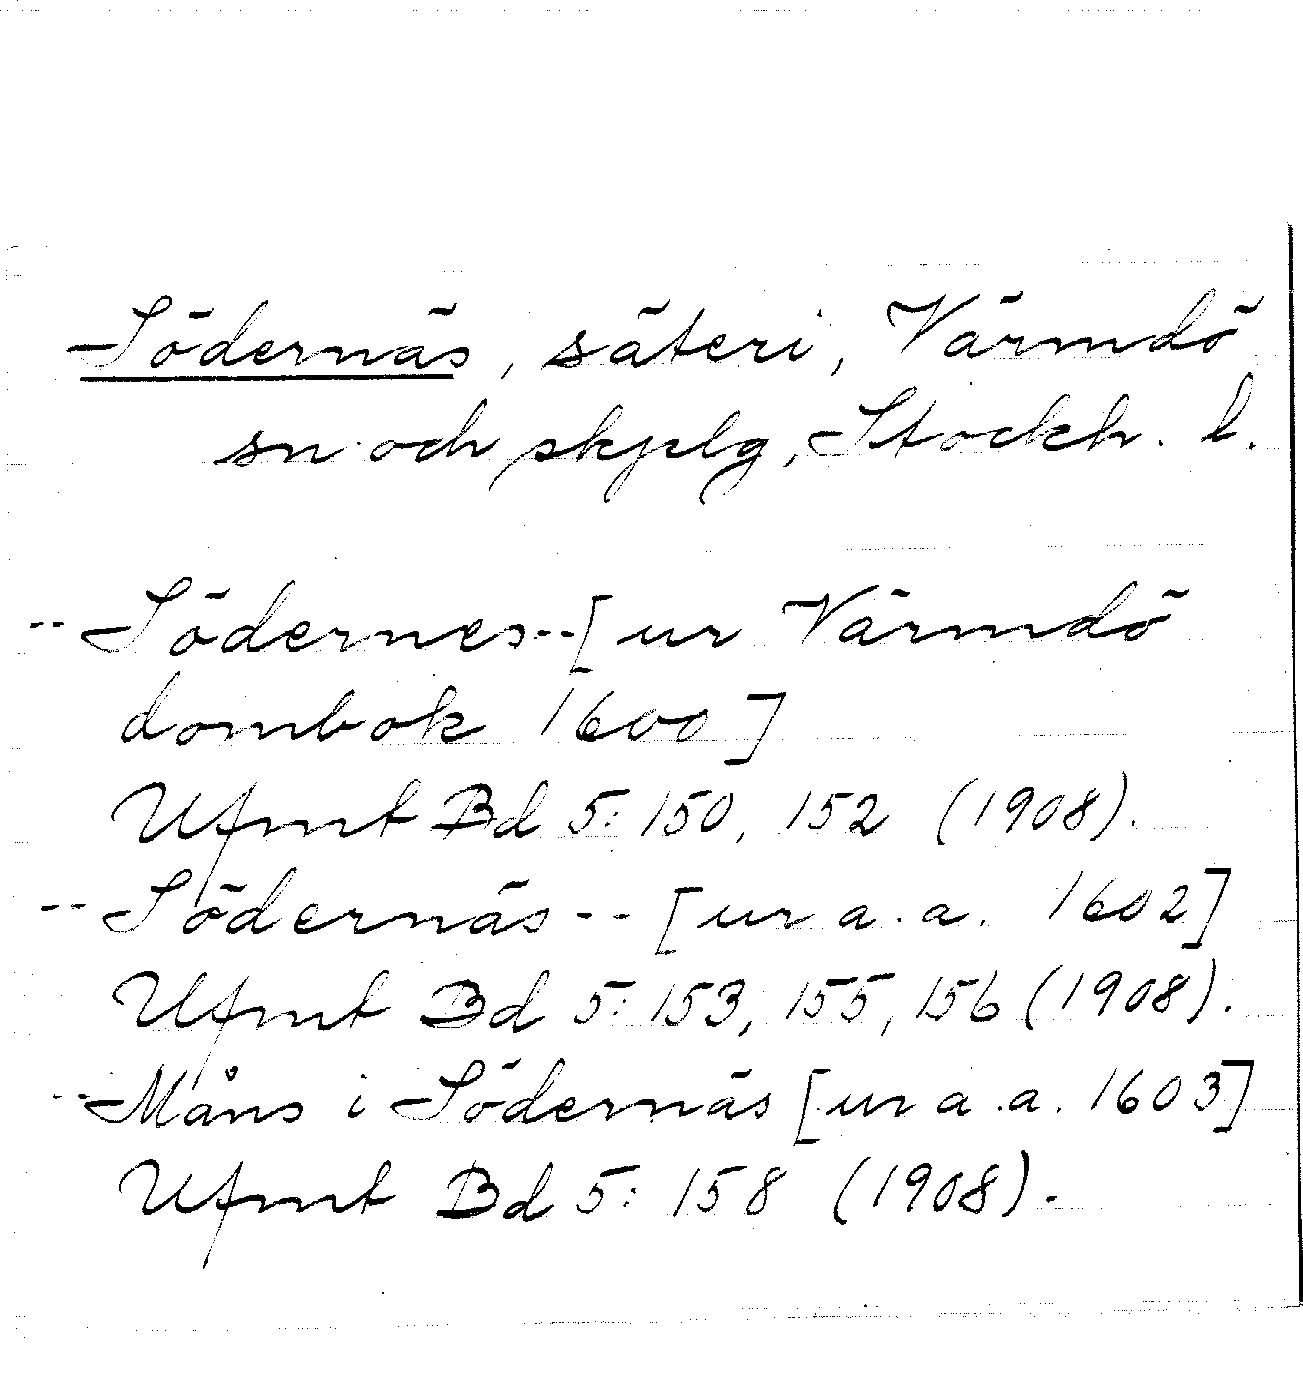 Södernäs, säteri, Värmdö
sn och skplg, Stockh. l.
-- Södernes -- [ur Värmdö
dombok 1600]
Ufmt Bd 5: 150, 152 (1908).
-- Södernäs -- [ur a. a. 1602]
Ufmt Bd 5: 153, 155, 156 (1908).
-- Måns i Södernäs [ur a. a. 1603]
Ufmt Bd 5: 158 (1908).